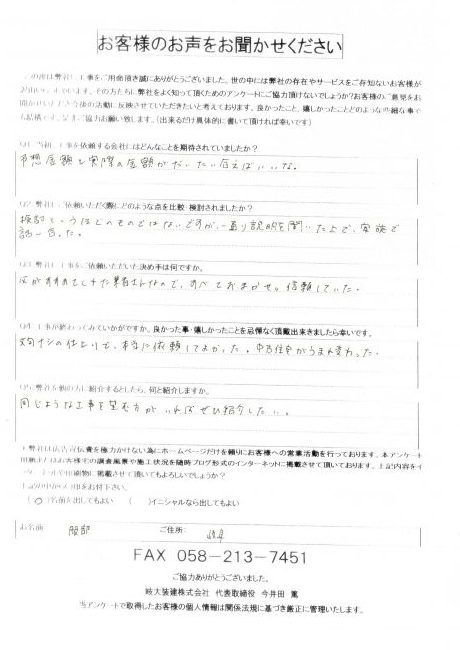 お客様のお声をお聞かせください
工事をご用命頂き誠にありがとうございました。世の中には弊社の存在やサービスをご存知ないお客様が
その方たちに弊社をよく知って頂くためのアンケートにご協力頂けないでしょうか?お客様のご意見をお
今後の活動に反映させていただきたいと考えております。良かったこと、嬉しかったことどのような些細な事で
ご協力お願い致します。(出来るだけ具体的に書いて頂ければ幸いです)
Q1 当初、工事を依頼する会社にはどんなことを期待されていましたか?
予想金額と実際の金額がだいたい合えばいいな。
Q2 弊社にご依頼いただく際にどのような点を比較・検討されましたか?
検討というほどのものではないですが、一通り説明を聞いた上で、家族で
話し合った。
Q3 弊社に工事をご依頼いただいた決め手は何ですか。
すべておまかせ。信頼していた。
Q4 工事が終わってみていかがですか。良かった事・嬉しかったことを忌憚なく頂戴出来ましたら幸いです。
文句ナシの仕上りで、本当に依頼してよかった。
Q5 弊社を他の方に紹介するとしたら、何と紹介しますか。
同じような工事を望む方がいればぜひ紹介したい。
弊社は広告宣伝費を極力かけない為にホームページだけを頼りにお客様への営業活動を行っております。本アンケート
お客様宅の調査風景や施工状況を随時ブログ形式のインターネットに掲載させて頂いております。上記内容をイ
ンターネットや印刷物に掲載させて頂いてもよろしいでしょうか?
(○)名前を出してもよい ( )イニシャルなら出してもよい
お名前 服部 ご住所: 岐阜
FAX 058-213-7451
ご協力ありがとうございました。
岐大装建株式会社 代表取締役 今井田 薫
当アンケートで取得したお客様の個人情報は関係法規に基づき厳正に管理いたします。